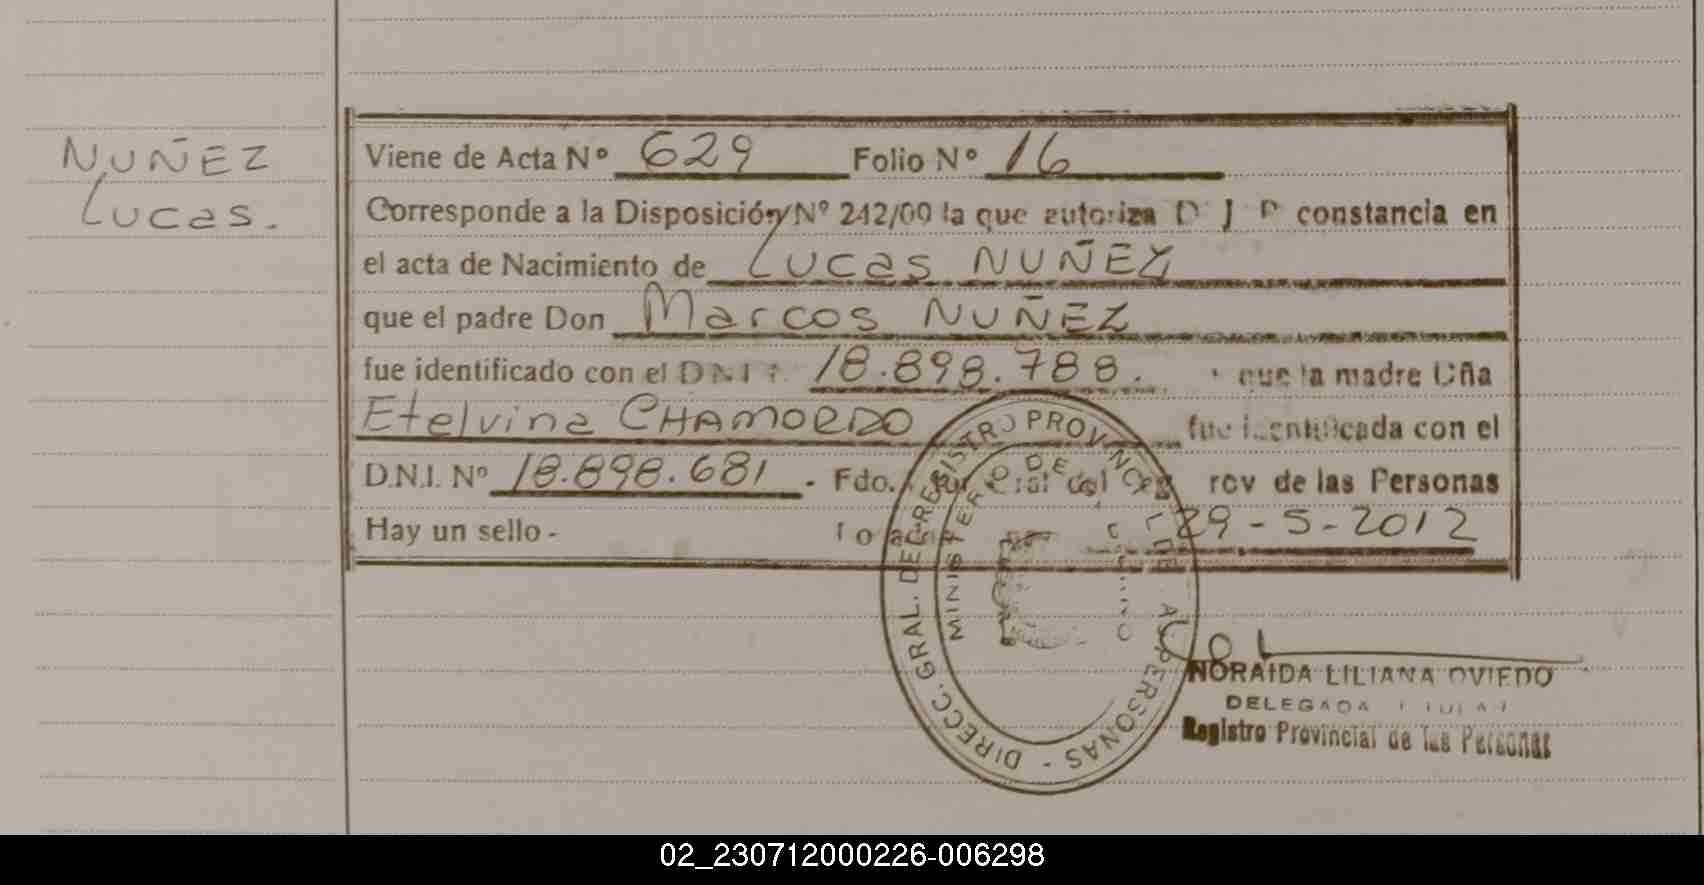 NUÑEZ
Lucas.
Viene de Acta Nº 629 Folio Nº 16
Corresponde a la Disposición Nº 242/00 la que autoriza D J P constancia en
el acta de Nacimiento de Lucas NUÑEZ
que el padre Don Marcos NUÑEZ
fue identificado con el D N I 18.898.788. que la madre Dña
Etelvina CHAMORDO fue identificada con el
D.N.I. Nº 18.898.681 . Fdo. rov de las Personas
Hay un sello - 29-5-2012
DIRECC. GRAL. DEL REGISTRO PROVINCIAL DE LAS PERSONAS -
MINISTERIO DE
NORAIDA LILIANA OVIEDO
DELEGADA
Registro Provincial de las Personas
02_230712000226-006298